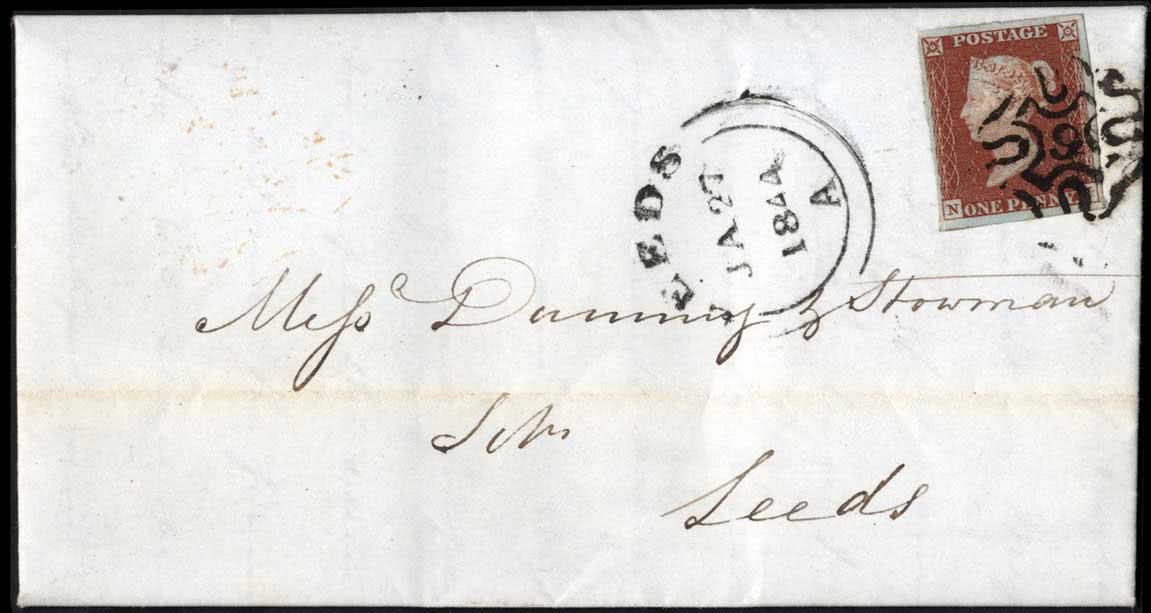 POSTAGE
8
N ONE PENNY
LEEDS
JA 27
1844
A
Messrs Dunning & Stowman
Sols
Leeds